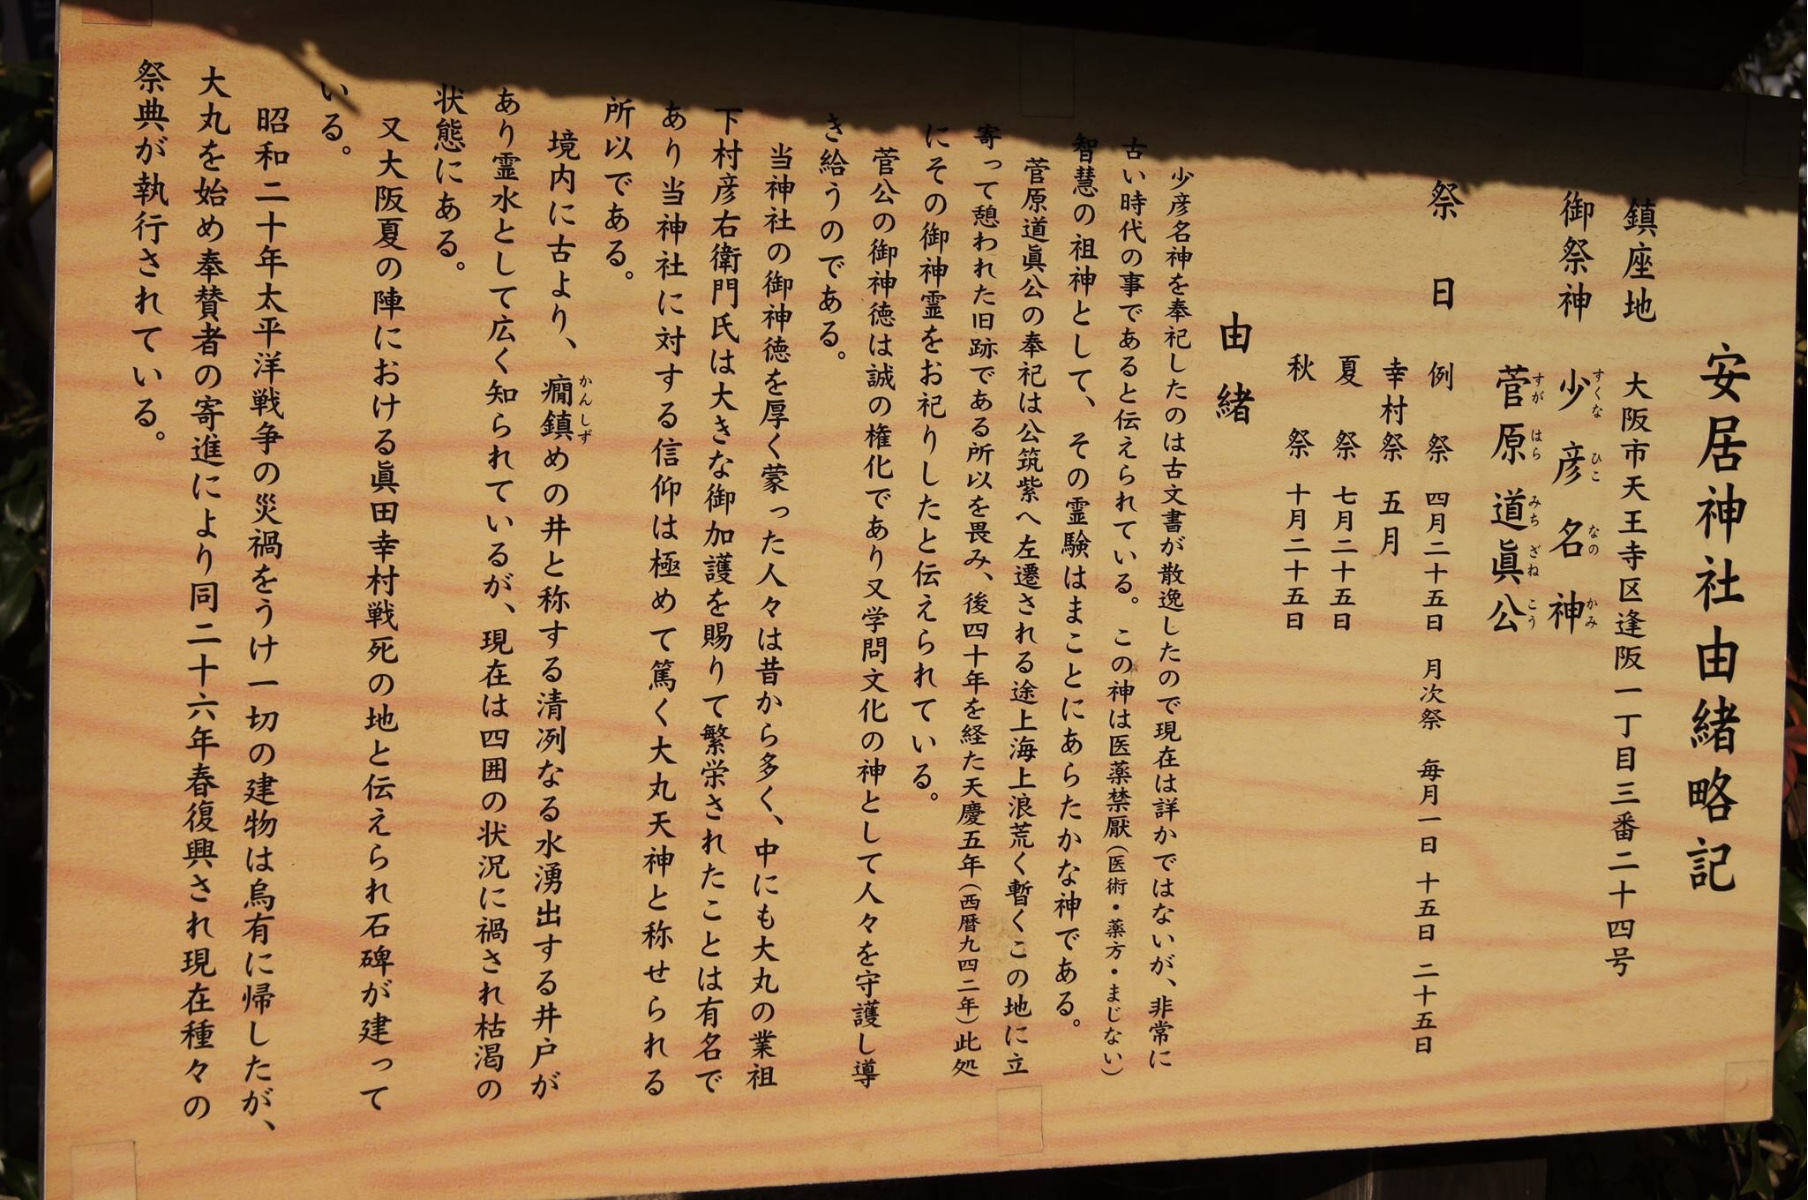 安居神社由緒略記
鎮座地　大阪市天王寺区逢阪一丁目三番二十四号
御祭神　少彦名神
すくな ひこ なの かみ
菅原道眞公
すが はら みち ざね こう
祭　日　例　祭　四月二十五日　月次祭　毎月一日　十五日　二十五日
幸村祭　五月
夏　祭　七月二十五日
秋　祭　十月二十五日
由緒
少彦名神を奉祀したのは古文書が散逸したので現在は詳かではないが、非常に
古い時代の事であると伝えられている。この神は医薬禁厭（医術・薬方・まじない）
智慧の祖神として、その霊験はまことにあらたかな神である。
菅原道眞公の奉祀は公筑紫へ左遷される途上海上浪荒く暫くこの地に立
寄って憩われた旧跡である所以を畏み、後四十年を経た天慶五年（西暦九四二年）此処
にその御神霊をお祀りしたと伝えられている。
菅公の御神徳は誠の権化であり又学問文化の神として人々を守護し導
き給うのである。
当神社の御神徳を厚く蒙った人々は昔から多く、中にも大丸の業祖
下村彦右衛門氏は大きな御加護を賜りて繁栄されたことは有名で
あり当神社に対する信仰は極めて篤く大丸天神と称せられる
所以である。
境内に古より、癇鎮めの井と称する清冽なる水湧出する井戸が
かんしず
あり霊水として広く知られているが、現在は四囲の状況に禍され枯渇の
状態にある。
又大阪夏の陣における眞田幸村戦死の地と伝えられ石碑が建って
いる。
昭和二十年太平洋戦争の災禍をうけ一切の建物は烏有に帰したが、
大丸を始め奉賛者の寄進により同二十六年春復興され現在種々の
祭典が執行されている。